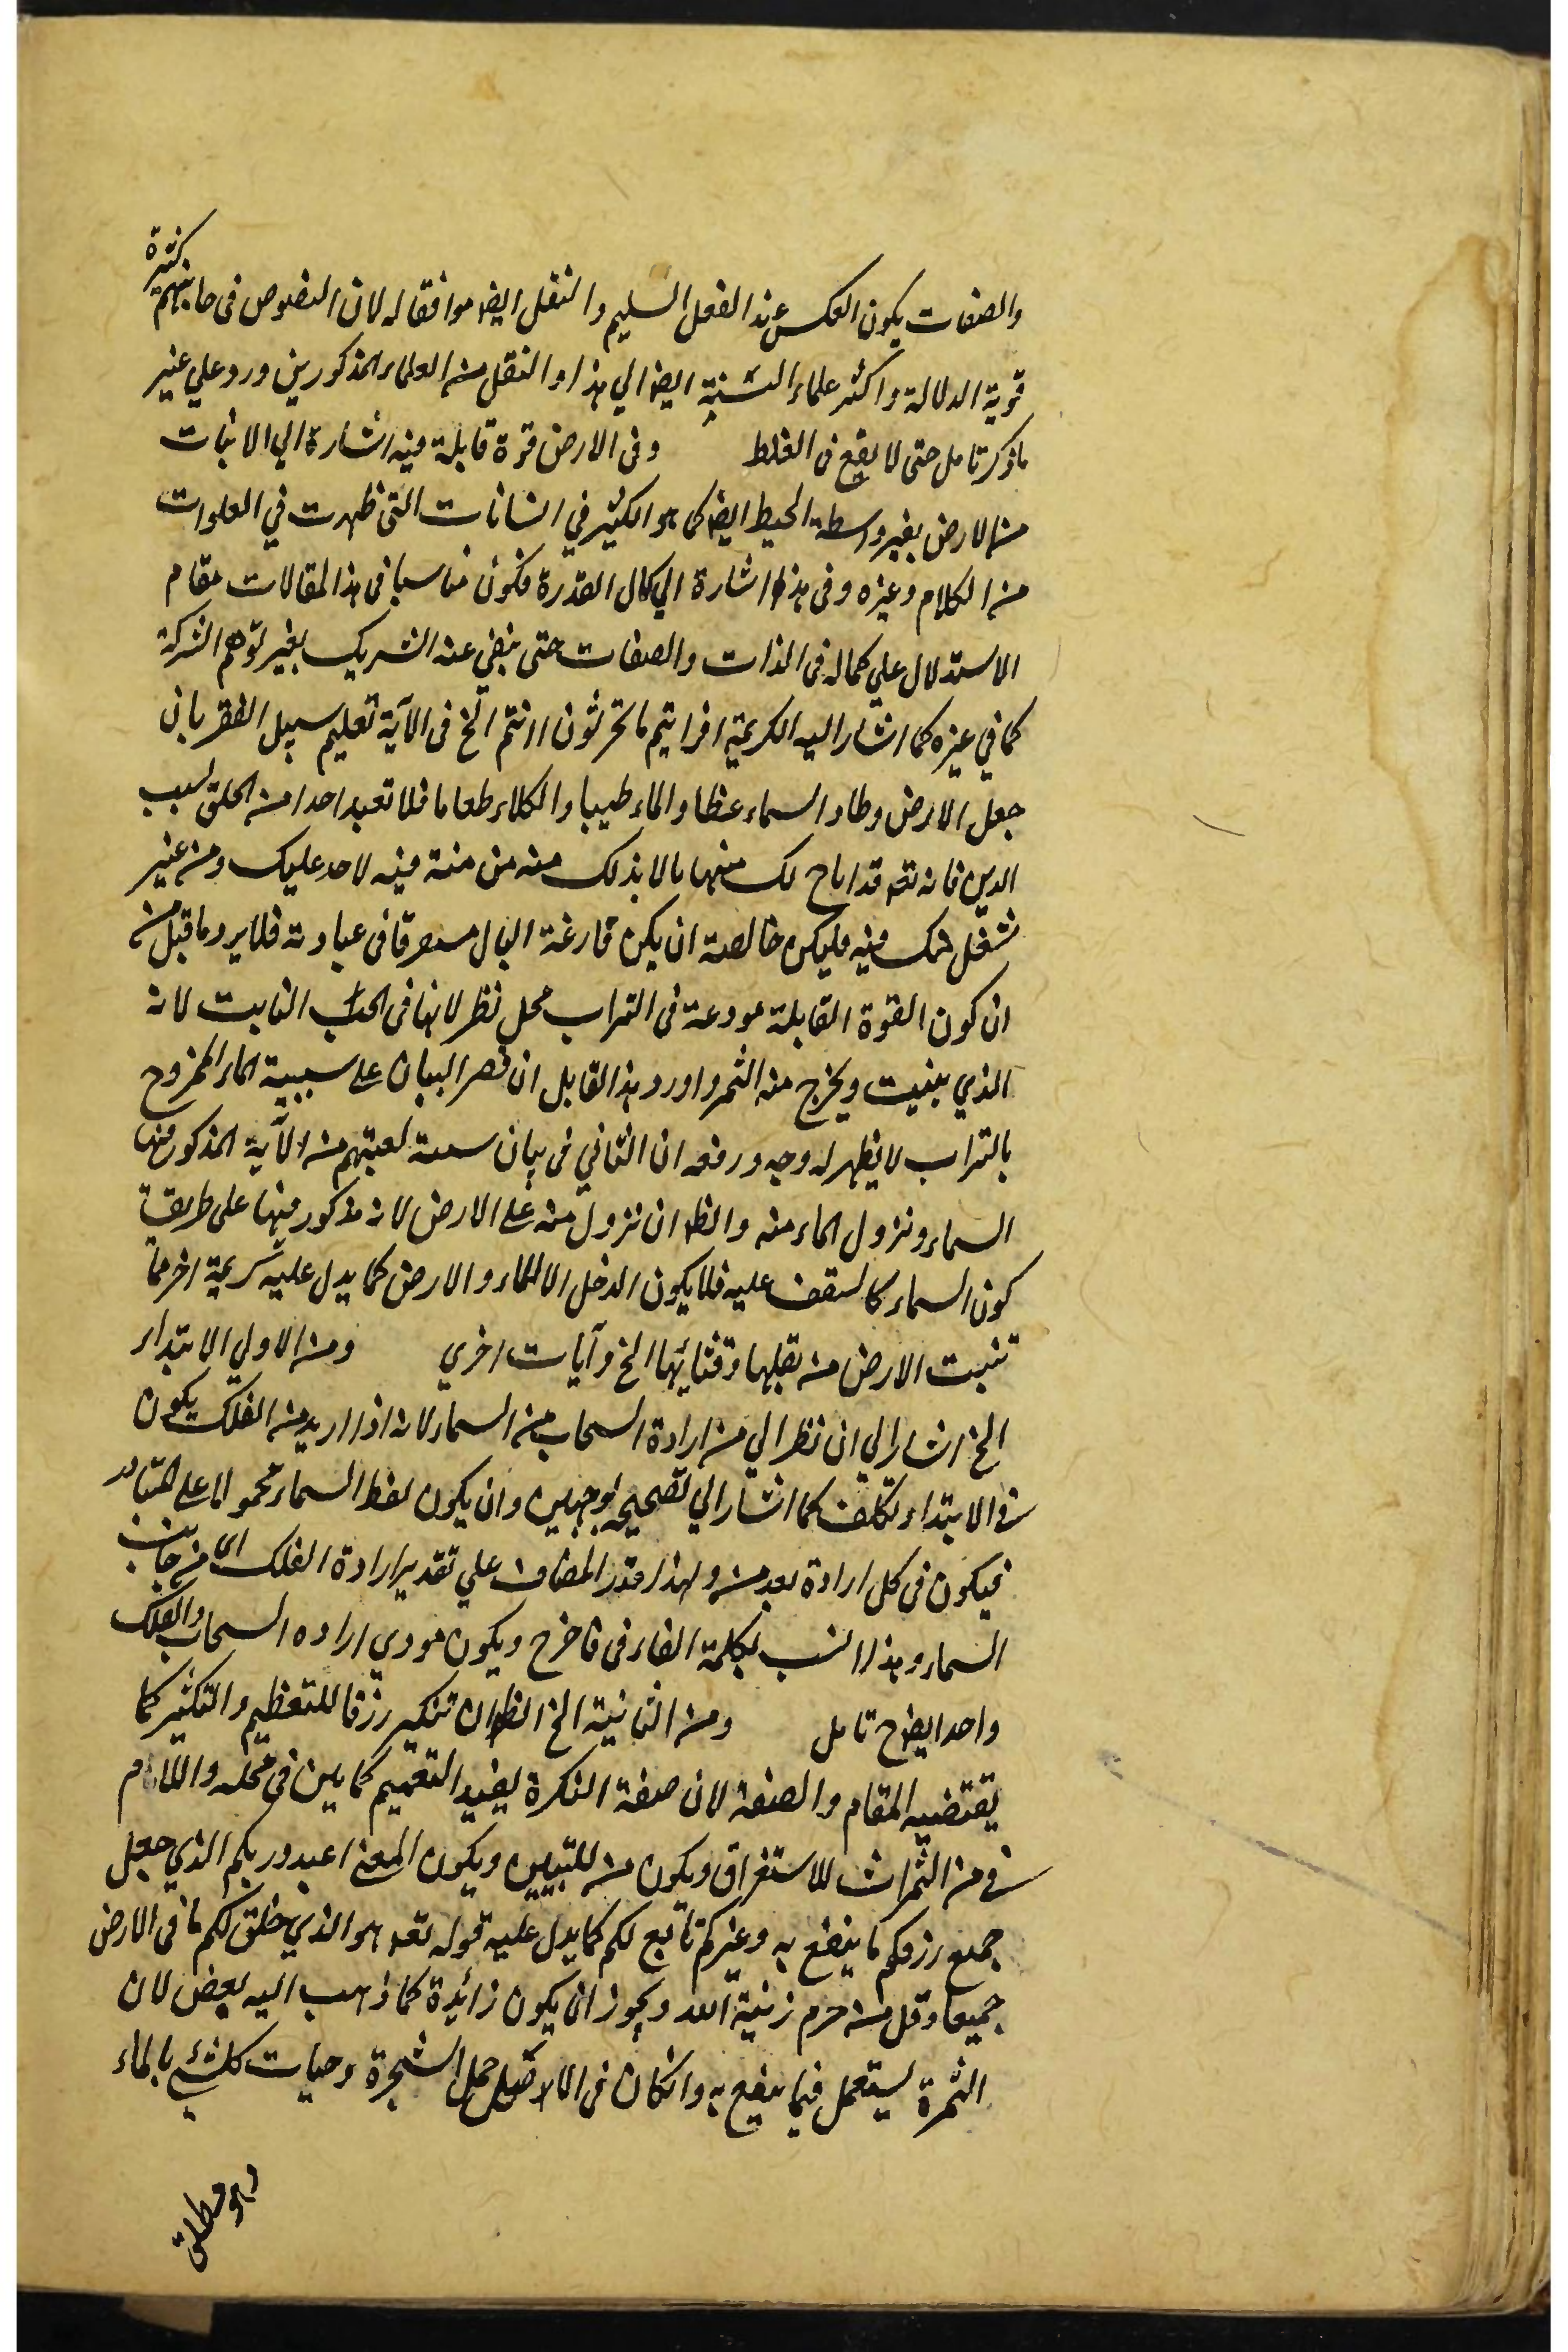 والصفات يكون العكس عند العقل السليم والنقل ايضا موافقا له لان النصوص فى جانبهم كثيرة
قوية الدلالة واكثر علماء السنية ايضا الي هذا والنقل من العلماء المذكورين ورد علي غير
ما ذكر تامل حتى لا يقع فى الغلط وفى الارض قوة قابلة فيه اشارة الي الانبات
من الارض بغير واسطة الحيط ايضا كما هو الكثير في النباتات التى ظهرت في العلوات
من الكلام وغيره وفى هذا اشارة الي كمال القدرة فكون مناسبا فى هذا المقالات مقام
الاستدلال علي كماله فى الذات والصفات حتى ينفي عنه الشريك بغير توهم الشركة
كما في غيره كما اشار اليه الكريمة افرايتم ما تحرثون ءانتم الخ فى الآية تعليم سبيل الفقر بان
جعل الارض وطاء والسماء غطاء والماء طيبا والكلاء طعاما فلا تعبد احدا من الخلق بسبب
الدين فانه تعه قد اباح لك منها مالا بذلك منه من منة فيه لاحد عليك ومن غير
شغل لك فيه فليكن خالصة ان يكن فارغة البال مستغرقا فى عبادته فلا يرد ما قيل من
ان كون القوة القابلة مودعة فى التراب محل نظر لانها فى الحب النابت لانه
الذي ينبت ويخرج منه الثمر واورد هذا القايل ان قصر البيان على سببية الماء الممزوج
بالتراب لا يظهر له وجه ورفعه ان الثاني فى بيان سمة لعبتهم من الآية المذكور فيها
السماء ونزول الماء منه والظ ان نزول منه على الارض لانه مذكور فيها على طريقة
كون السماء كالسقف عليه فلا يكون الدخل الا للماء والارض كما يدل عليه كريمة اخر مما
تنبت الارض من بقلها وقثائها الخ وآيات اخري ومن الاولي الابتداء
الخ اشار الي ان نظر الي من ارادة السحاب من السماء لانه اذا اريد منه الفلك يكون
فى الابتداء تكلف كما اشار الي تصحيحه بوجهين وان يكون لفظ السماء محمولا على المتبادر
فيكون فى كل ارادة بعد منه ولهذا قدر المضاف علي تقدير ارادة الفلك اى من جانب
السماء وهذا انسب بكلمة الفاء فى فاخرج ويكون مودي اراده السحاب والفلك
واحد ايضاح تامل ومن الثانية الخ الظ ان تنكير رزقا للتعظيم والتكثير كما
يقتضيه المقام والصفة لان صفة النكرة يفيد التعميم كما بين فى محله واللام
فى من الثمرات للاستغراق ويكون من للتبيين ويكون المعنى اعبدوا ربكم الذي جعل
جميع رزقكم ما ينتفع به وغيركم تابع لكم كما يدل عليه قوله تعه هو الذي خلق لكم ما فى الارض
جميعا وقل من حرم زينة الله ويجوز ان يكون زائدة كما ذهب اليه بعض لان
الثمرة يستعمل فيما ينتفع به وانكان فى الاصل حمل الشجرة وحيات كلشئ بالماء
وهو مطلق